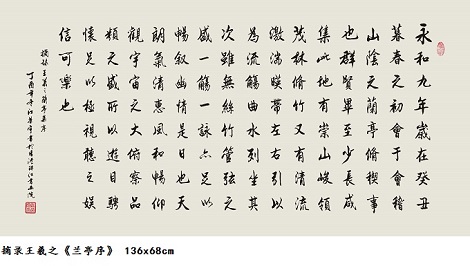 永和九年歲在癸丑
暮春之初會于會稽
山陰之蘭亭脩稧事
也群賢畢至少長咸
集此地有崇山峻領
茂林脩竹又有清流
激湍暎帶左右引以
為流觴曲水列坐其
次雖無絲竹管弦之
盛一觴一詠亦足以
暢敘幽情是日也天
朗氣清惠風和暢仰
觀宇宙之大俯察品
類之盛所以遊目騁
懷足以極視聽之娛
信可樂也
摘錄王羲之蘭亭集序
丁酉年
摘录王羲之《兰亭序》 136x68cm